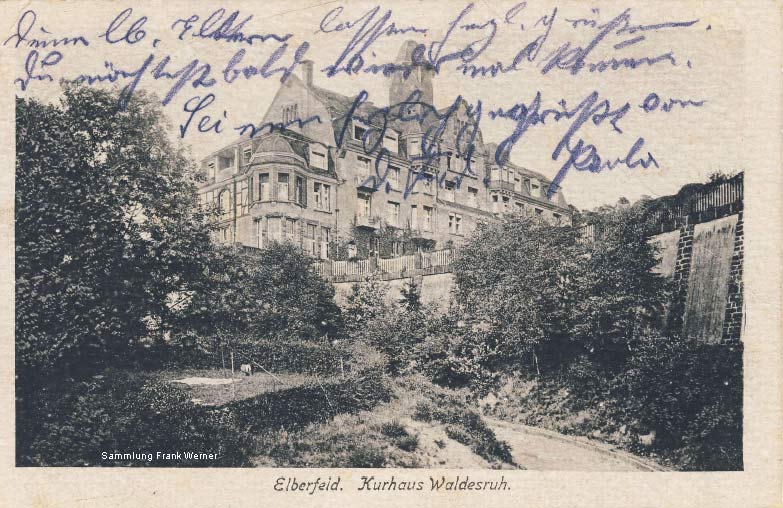 Deine lb. Eltern lassen herzl. grüßen.
Du möchtest bald wieder mal kommen.
Sei nun herzlich gegrüßt von
Paula
Sammlung Frank Werner
Elberfeld. Kurhaus Waldesruh.